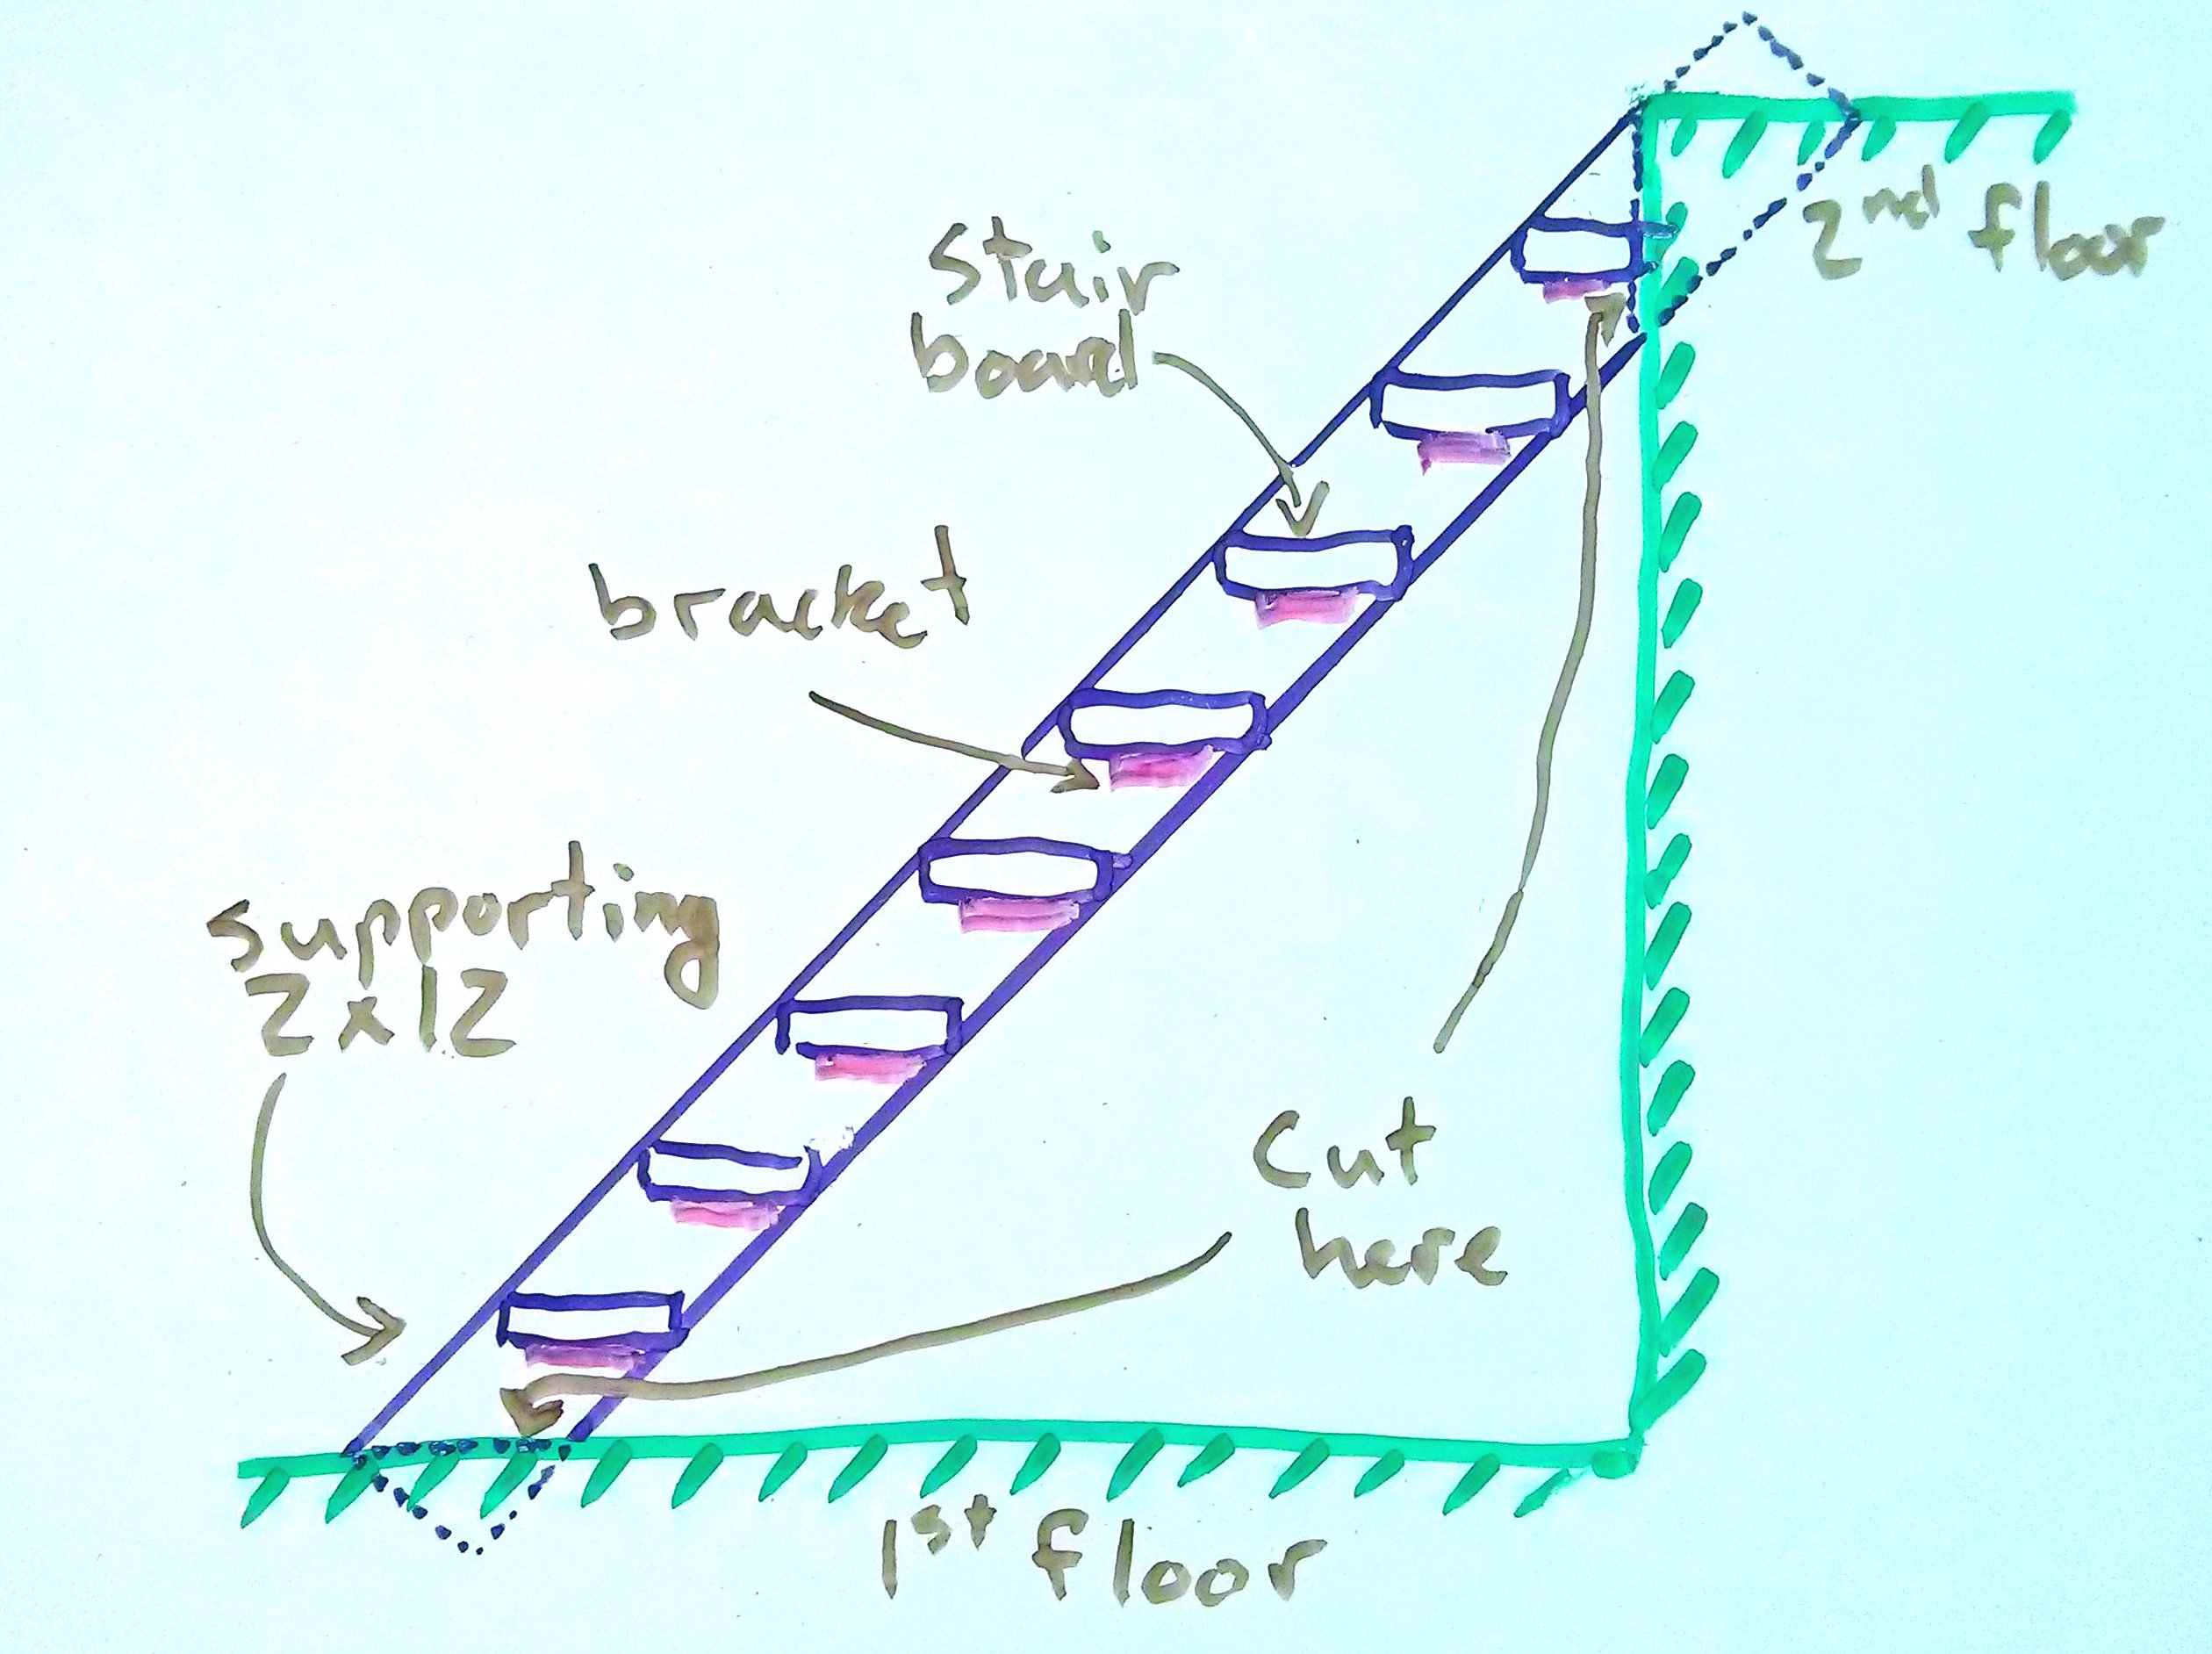 2nd floor
Stair
board
bracket
supporting
2x12
Cut
here
1st floor